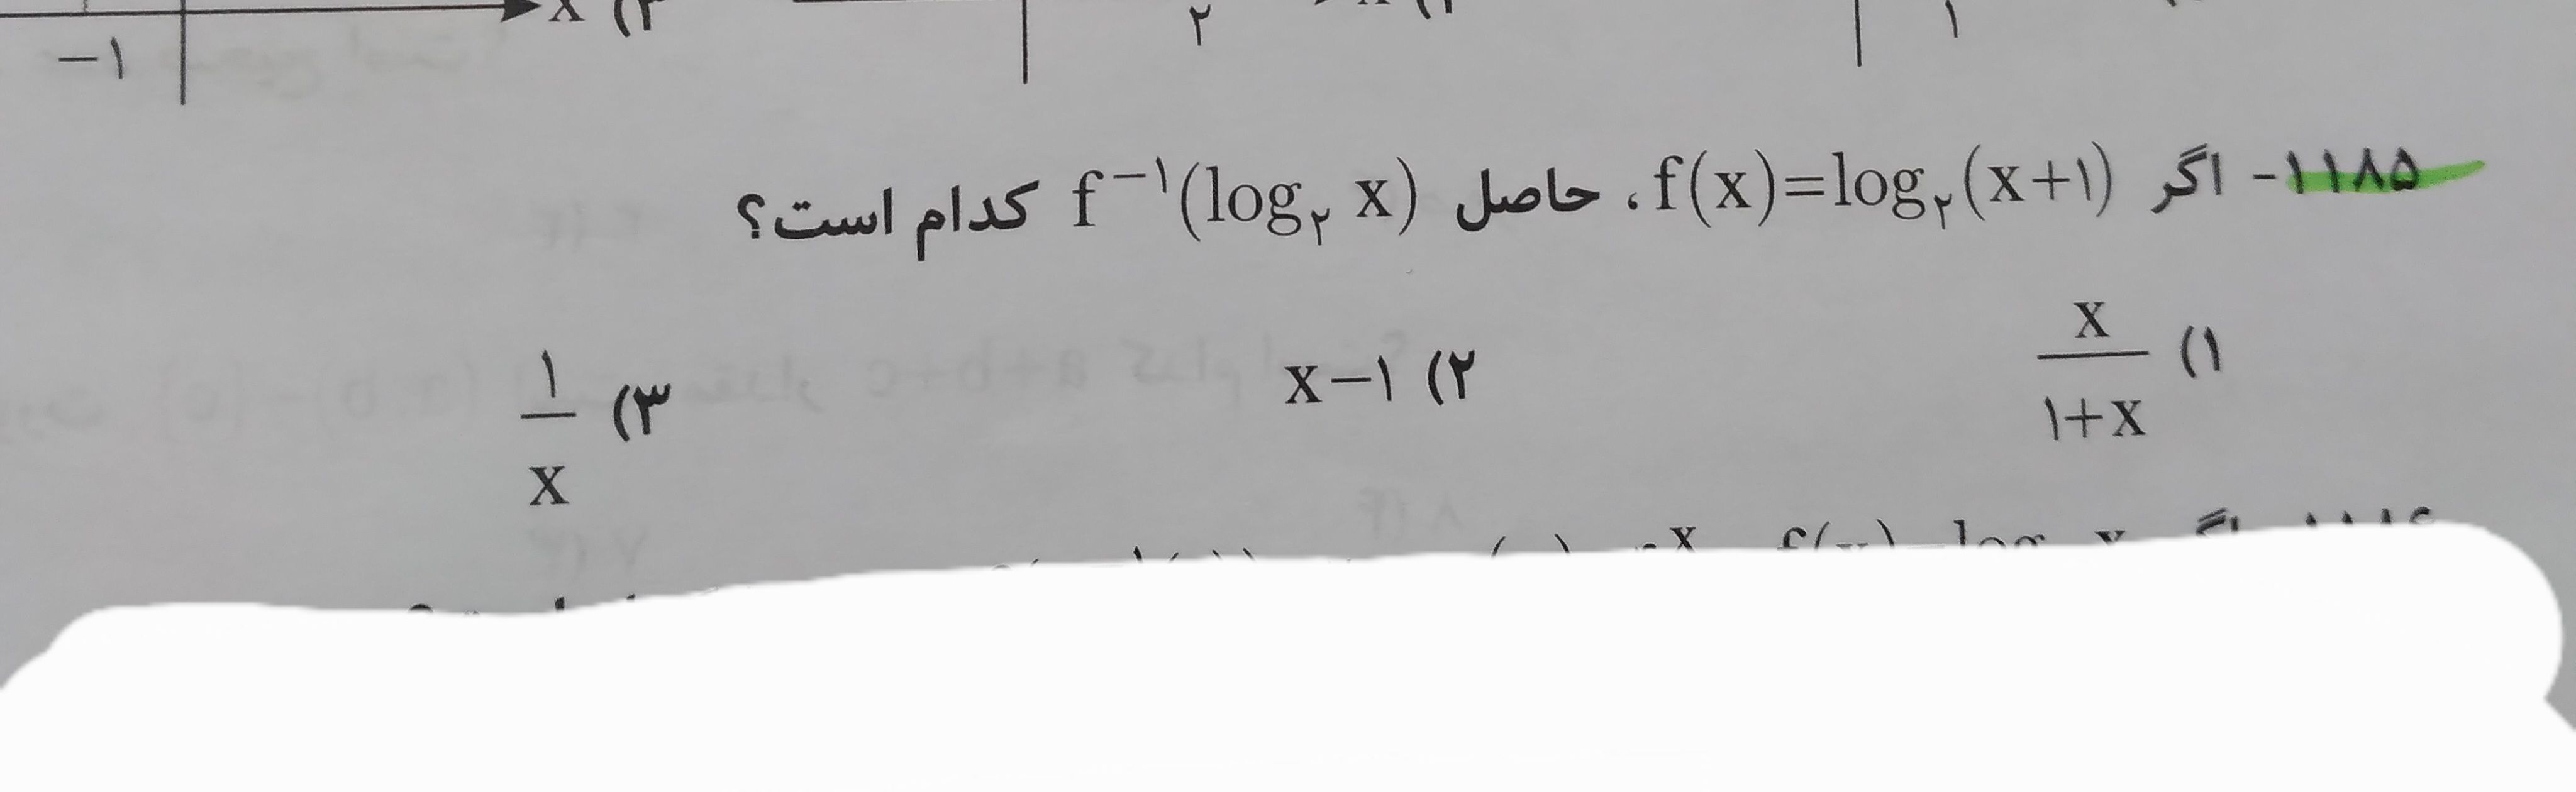 -۱
۲
۱
۱۱۸۵- اگر f(x)=log₂(x+۱)، حاصل f⁻¹(log₂ x) کدام است؟
۱) x/(۱+x)
۲) x-۱
۳) ۱/x